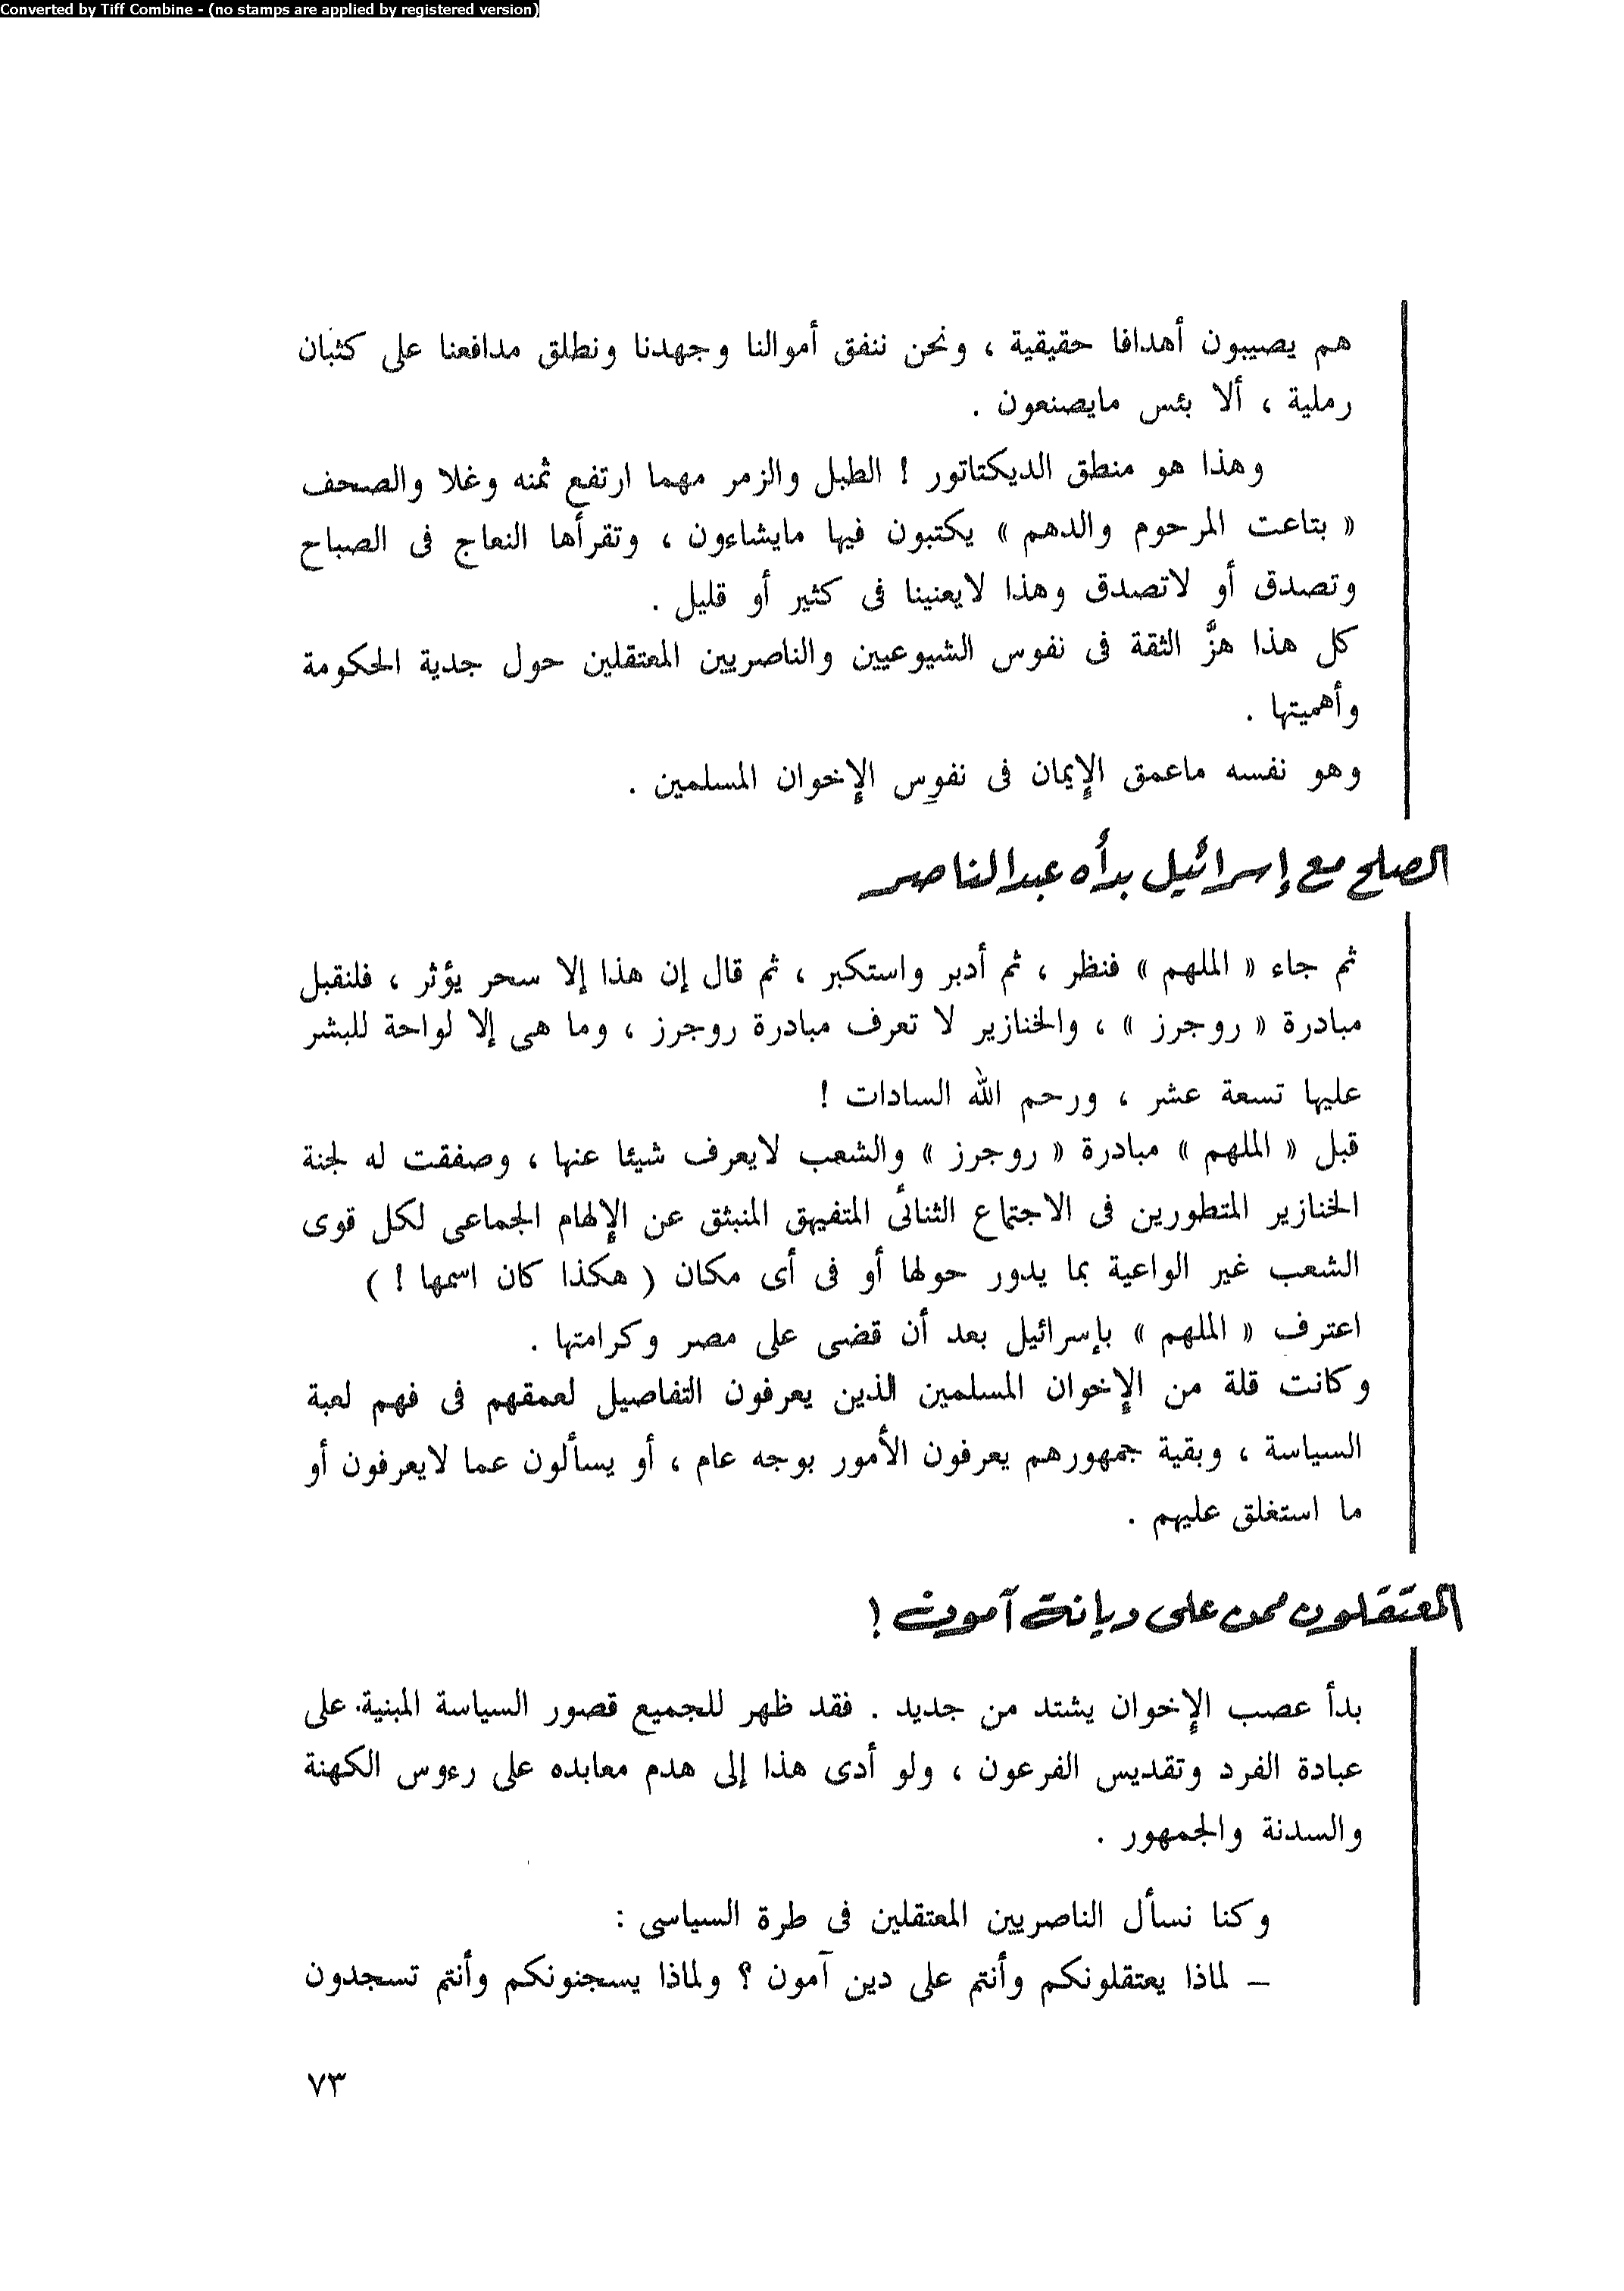 Converted by Tiff Combine - (no stamps are applied by registered version)
هم يصيبون أهدافا حقيقية ، ونحن ننفق أموالنا وجهدنا ونطلق مدافعنا على كثبان
رملية ، ألا بئس مايصنعون .
وهذا هو منطق الديكتاتور ! الطبل والزمر مهما ارتفع ثمنه وغلا والصحف
« بتاعت المرحوم والدهم » يكتبون فيها مايشاءون ، وتقرأها النعاج فى الصباح
وتصدق أو لاتصدق وهذا لايعنينا فى كثير أو قليل .
كل هذا هزَّ الثقة فى نفوس الشيوعيين والناصريين المعتقلين حول جدية الحكومة
وأهميتها .
وهو نفسه ماعمق الإيمان فى نفوس الإخوان المسلمين .
الصلح مع إسرائيل بدأه عبدالناصر
ثم جاء « الملهم » فنظر ، ثم أدبر واستكبر ، ثم قال إن هذا إلا سحر يؤثر ، فلنقبل
مبادرة « روجرز » ، والخنازير لا تعرف مبادرة روجرز ، وما هى إلا لواحة للبشر
عليها تسعة عشر ، ورحم الله السادات !
قبل « الملهم » مبادرة « روجرز » والشعب لايعرف شيئا عنها ، وصفقت له لجنة
الخنازير المتطورين فى الاجتماع الثنائى المتفيهق المنبثق عن الإلهام الجماعى لكل قوى
الشعب غير الواعية بما يدور حولها أو فى أى مكان ( هكذا كان اسمها ! )
اعترف « الملهم » بإسرائيل بعد أن قضى على مصر وكرامتها .
وكانت قلة من الإخوان المسلمين الذين يعرفون التفاصيل لعمقهم فى فهم لعبة
السياسة ، وبقية جمهورهم يعرفون الأمور بوجه عام ، أو يسألون عما لايعرفون أو
ما استغلق عليهم .
المعتقلون ممن على ديانة آمون !
بدأ عصب الإخوان يشتد من جديد . فقد ظهر للجميع قصور السياسة المبنية على
عبادة الفرد وتقديس الفرعون ، ولو أدى هذا إلى هدم معابده على رءوس الكهنة
والسدنة والجمهور .
وكنا نسأل الناصريين المعتقلين فى طرة السياسى :
– لماذا يعتقلونكم وأنتم على دين آمون ؟ ولماذا يسجنونكم وأنتم تسجدون
٧٣